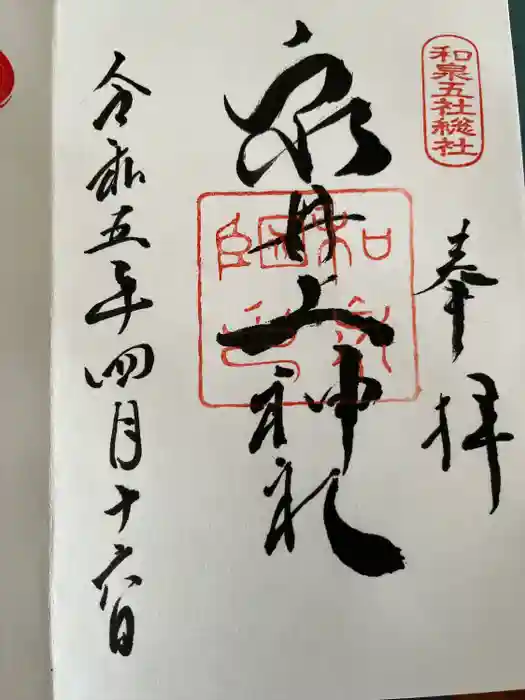 和泉五社総社
奉拝
泉井上神社
和泉国印
令和五年四月十六日